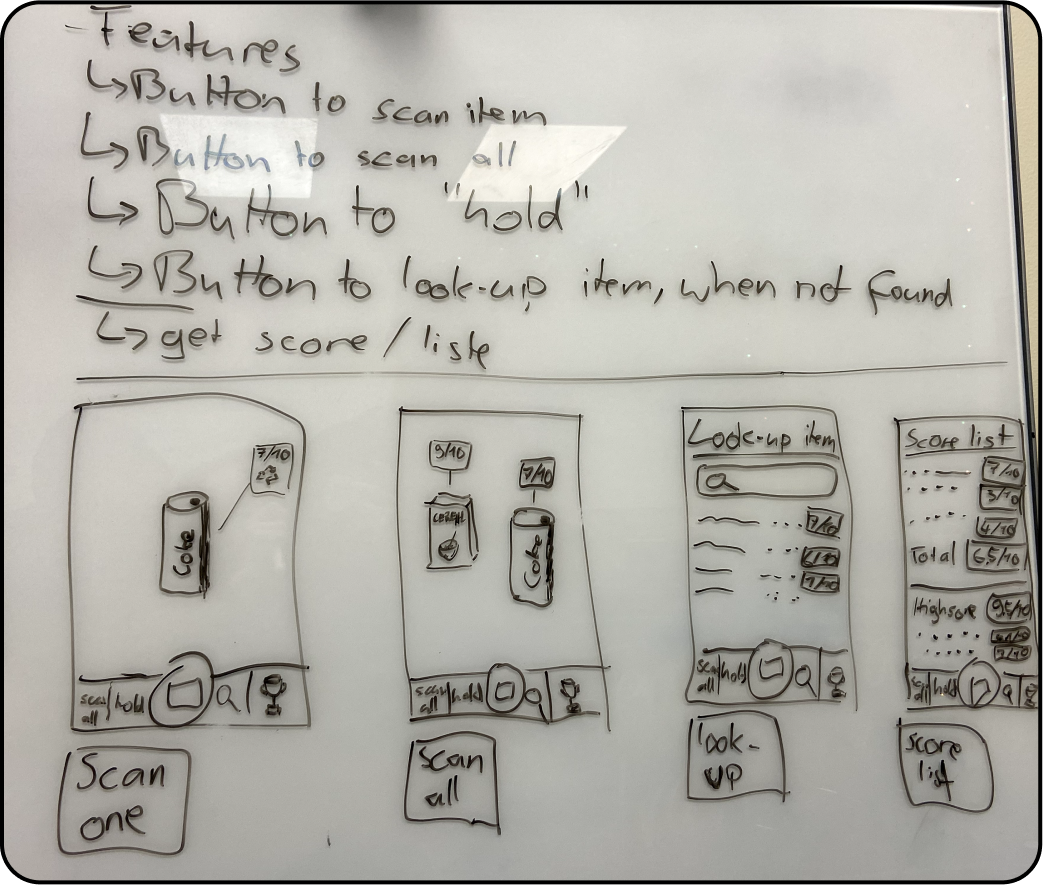 - Features
↳ Button to scan item
↳ Button to scan all
↳ Button to "hold"
↳ Button to look-up item, when not found
↳ get score / liste
7/10
Coke
scan all
hold
Scan one
9/10
7/10
Coke
scan all
hold
Scan all
Look-up item
7/10
scan all
hold
look-up
Score list
7/10
3/10
4/10
Total 6,5/10
9,5/10
hold
score list